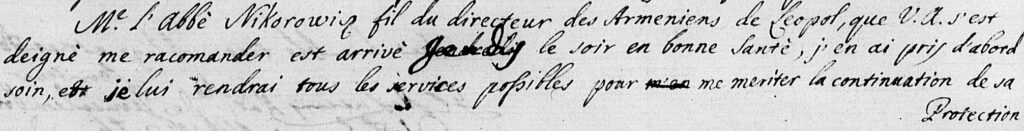 Mr. l'Abbé Nikorowiz fil du directeur des Armeniens de Leopol, que V. A. s'est
deigné me racomander est arrivé Jeudy le soir en bonne santé, j'en ai pris d'abord
soin, et je lui rendrai tous les services possibles pour me meriter la continuation de sa
Protection